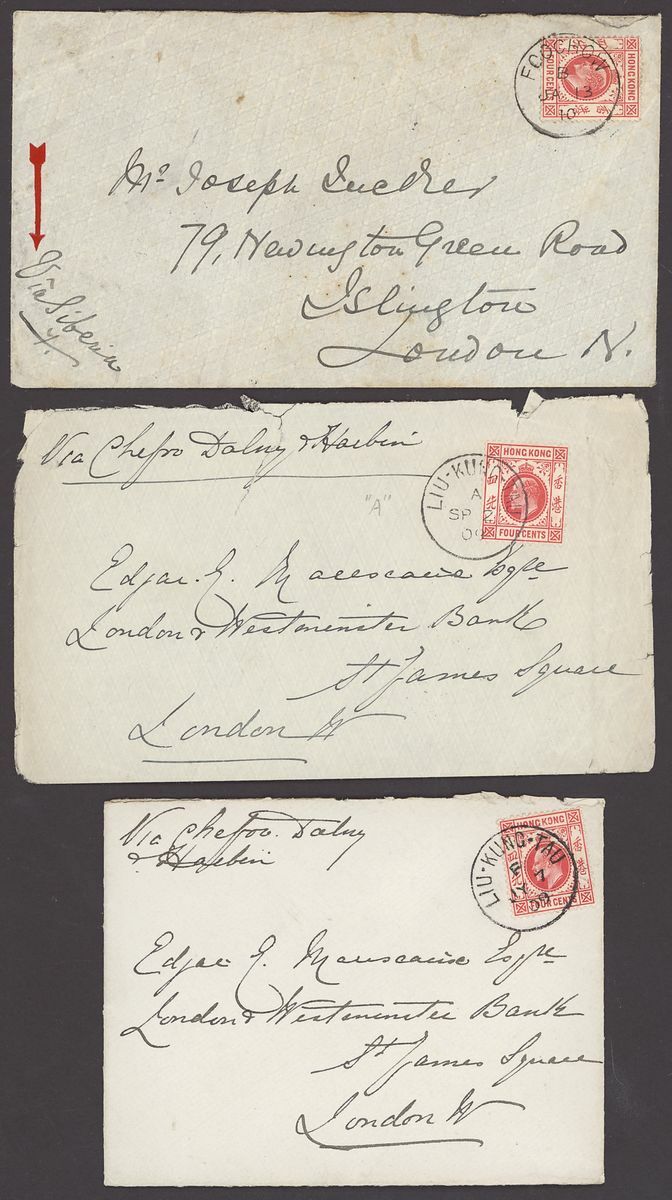 FOOCHOW
B
JA 13
10
HONG KONG
FOUR CENTS
Mr. Joseph Tucker
79, Newington Green Road
Islington
London N.
Via Siberia
Via Chefoo Dalny & Harbin
"A"
LIU-KUNG
A
SP 2
09
HONG KONG
FOUR CENTS
香港
四北
Edgar. E. Esqre
London & Westminster Bank
St James Square
London W
Via Chefoo. Dalny
& Harbin
LIU-KUNG-TAU
JY 7
09
HONG KONG
FOUR CENTS
Edgar E. Esqre
London & Westminster Bank
St James Square
London W